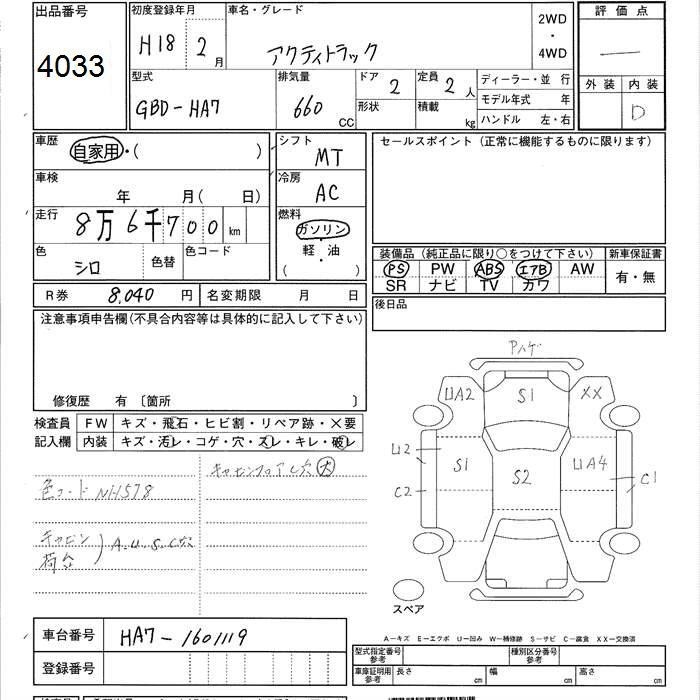 出品番号
4033
初度登録年月
H18 2 月
車名・グレード
アクティトラック
2WD
・
4WD
評価点
―
外装 内装
D
型式
GBD-HA7
排気量
660 CC
ドア 2
形状
定員 2 人
積載 kg
ディーラー・並 行
モデル年式 年
ハンドル 左・右
車歴
自家用・( )
シフト
MT
セールスポイント (正常に機能するものに限ります)
車検
年 月( 日)
冷房
AC
走行
8万6千700 km
燃料
ガソリン
軽・油
( )
色
シロ
色替
色コード
装備品 (純正品に限り○をつけて下さい)
新車保証書
PS PW ABS エアB AW
SR ナビ TV カワ
有・無
R券 8,040 円
名変期限 月 日
後日品
注意事項申告欄(不具合内容等は具体的に記入して下さい)
修復歴 有 〔箇所 〕
検査員 FW キズ・飛石・ヒビ割・リペア跡・×要
記入欄 内装 キズ・汚レ・コゲ・穴・スレ・キレ・破レ
色コード NH578
キャビンフロアC穴大
キャビン
荷台
A.U.S.C穴
Pハゲ
UA2 S1 XX
U2 S1 S2 UA4
C2 C1
スペア
車台番号 HA7-1601119
登録番号
A―キズ E―エクボ U―凹み W―補修跡 S―サビ C―腐食 XX―交換済
型式指定番号
参考
種別区分番号
参考
車庫証明用
参考
長さ cm 幅 cm 高さ cm